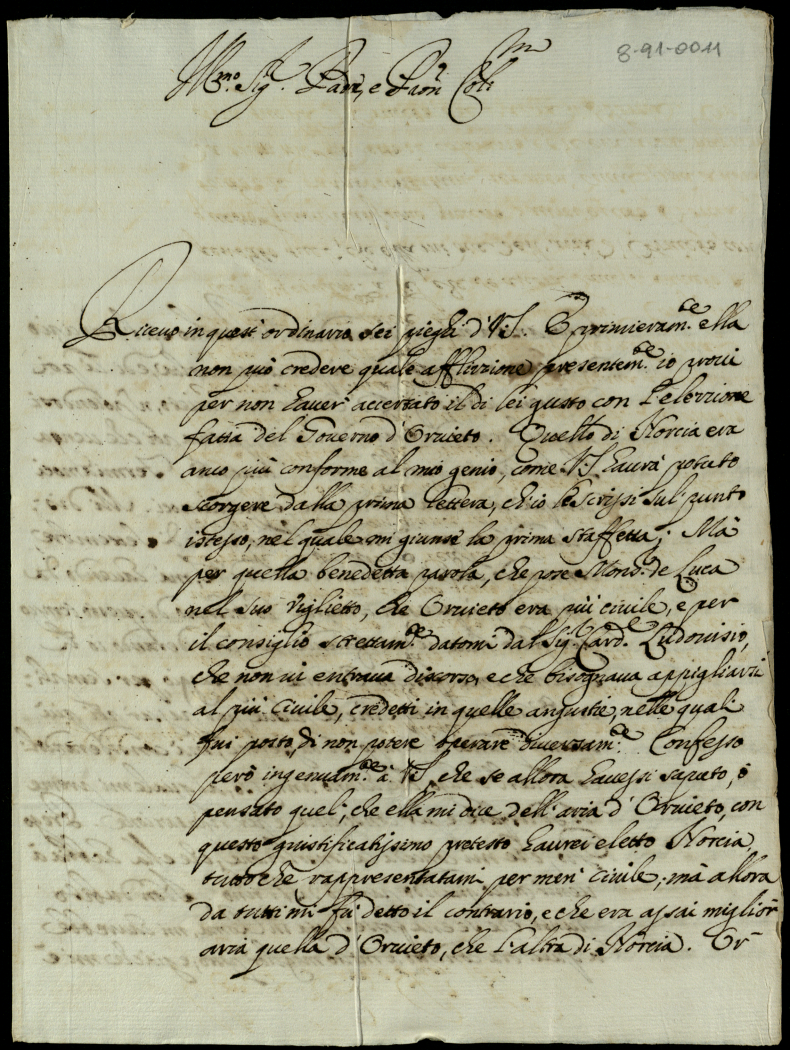 8-91-0011
Ill.mo Sig.r Padre, e Pron Col.mo
Riceuo in quest' ordinario sei pieghi d'V.S. E primieram.te ella
non può credere quale afflizzione presentem.te io proui
per non hauer' accertato il di lei gusto con l'elezzione
fatta del Gouerno d'Oruieto. Quello di Norcia era
anco più conforme al mio genio, come V.S. haurà potuto
scorgere dalla prima lettera, ch'io le scrissi sul' punto
istesso, nel quale mi giunse la prima staffetta; Mà
per quella benedetta parola, che pose Mons.r de Luca
nel suo viglietto, che Oruieto era più ciuile, e per
il consiglio strettam.te datomi dal Sig.r Card.le Ludouisio,
che non ui entraua discorso, e che bisognaua appigliarsi
al più ciuile, credetti in quelle angustie, nelle quali
fui posto, di non potere operare diuersam.te Confesso
però ingenuam.te à V.S. che se allora hauessi saputo, ò
pensato quel', che ella mi dice dell'aria d'Oruieto, con
questo giustificatissimo pretesto haurei eletto Norcia,
tutto che rappresentatami per men' ciuile; mà allora
da tutti mi fù detto il contrario, e che era assai miglior
aria quella d'Oruieto, che l'altra di Norcia. Or